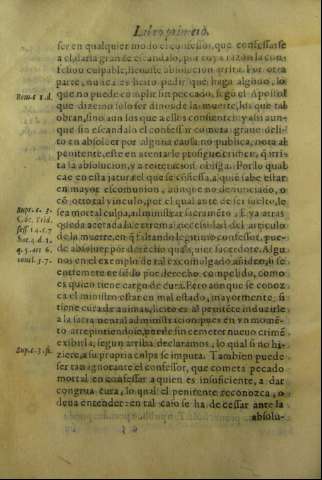 Libro primero.
ser en qualquier modo el confessor, que confessarse
a el, daria grande escandalo, por cuya razon la con-
fession culpable, lleuasse absolucion irrita. Por otra
parte, nunca es licito pedir que haga alguno, lo
Rom. 1. d.
que no puede cumplir sin peccado, segũ el Apostol
que dize no solo ser dinos de la muerte, los que tal
obran, sino aun los que a estos consienten: y assi aun-
que sin escandalo el confessor cometa graue deli-
to en absoluer por alguna causa no publica, nota al
penitente, este en
ta la absolucion, y a reteracion obliga. Por lo qual
cae en esta jatura el que se cõfiessa, a quiẽ sabe estar
en mayor escomunion, aunque no denunciado, o
cõ otro tal vinculo, por el qual ante de ser suelto, le
Supr. c. 3.
sea mortal culpa, administrar sacramẽto. E ya atras
Cõc. Trid.
queda acordada la extrema necessidad del articulo
sess. 14. c. 7
de la muerte, en q̃ faltando legitimo confessor, pue-
Sot. 4. d. 1.
de absoluer por derecho qualquier sacerdote. Algu-
q. 5. art. 6.
nos en el exemplo de tal excomulgado añiden, si se
concl. 3. 7.
entremete en
es quien tiene cargo de cura. Pero aunque se conoz
ca el ministro estar en mal estado, mayormente, si
tiene cura de animas, licito es al penitente induzirle
a la sacramental administracion, pues en vn momẽ-
to arrepintiendose, puede sin cometer nueuo crimẽ
exibirla, segun arriba declaramos, lo qual si no hi-
Sup. c. 3. fi.
ziere, a su propria culpa se imputa. Tambien puede
ser tan ignorante el confessor, que cometa pecado
mortal en confessar a quien es insuficiente, a dar
congrua cura, lo qual el penitente reconozca, o
deua entender: en tal caso se ha de cessar ante la
absolu-